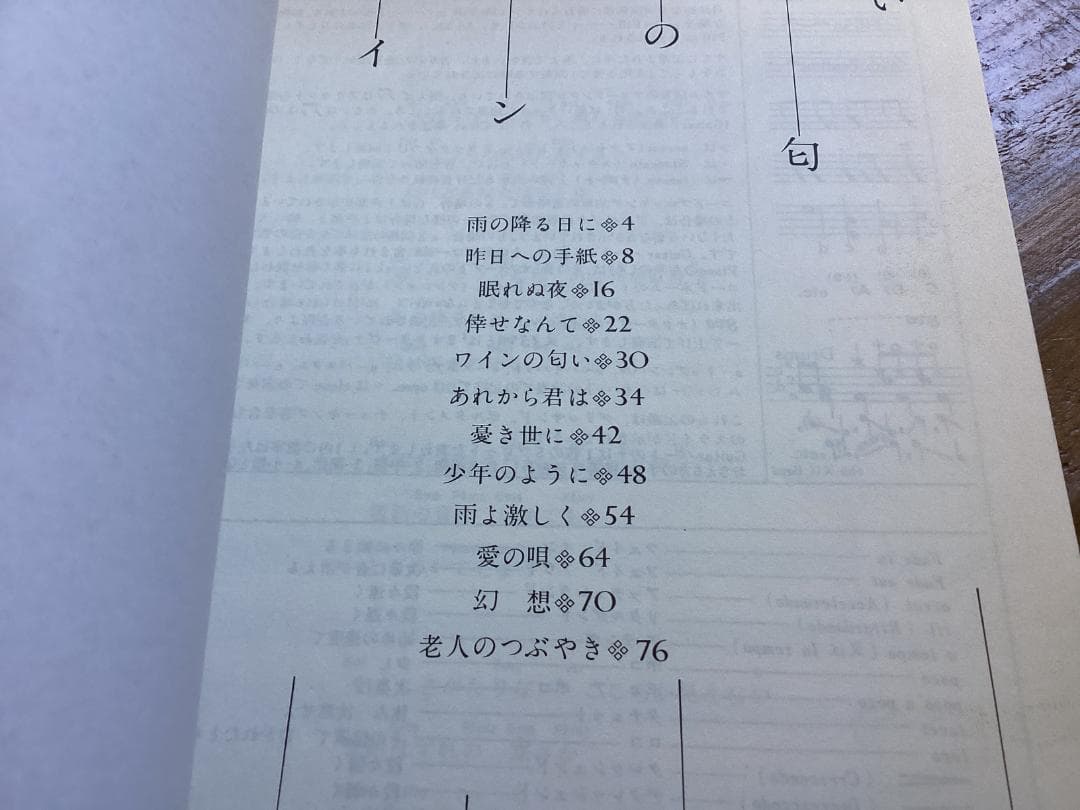 イ
ン
の
匂
い
雨の降る日に❖4
昨日への手紙❖8
眠れぬ夜❖16
倖せなんて❖22
ワインの匂い❖30
あれから君は❖34
憂き世に❖42
少年のように❖48
雨よ激しく❖54
愛の唄❖64
幻 想❖70
老人のつぶやき❖76